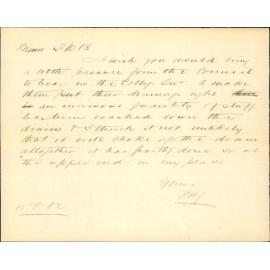 I wish you would bring
a little pressure from the Council
to bear on the College to make
them put their drainage right
an enormous quantity of stuff
has been washed down the
drain & I think it not unlikely
that it will choke up the drain
altogether it has partly done so at
the upper end in my place
Yours